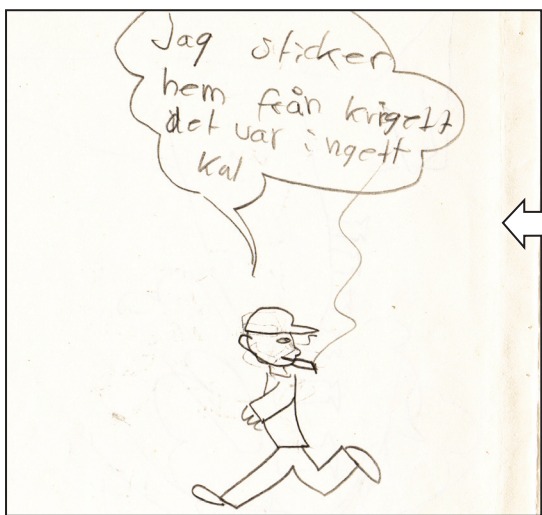 Jag sticker
hem från krigett
det var ingett
kul